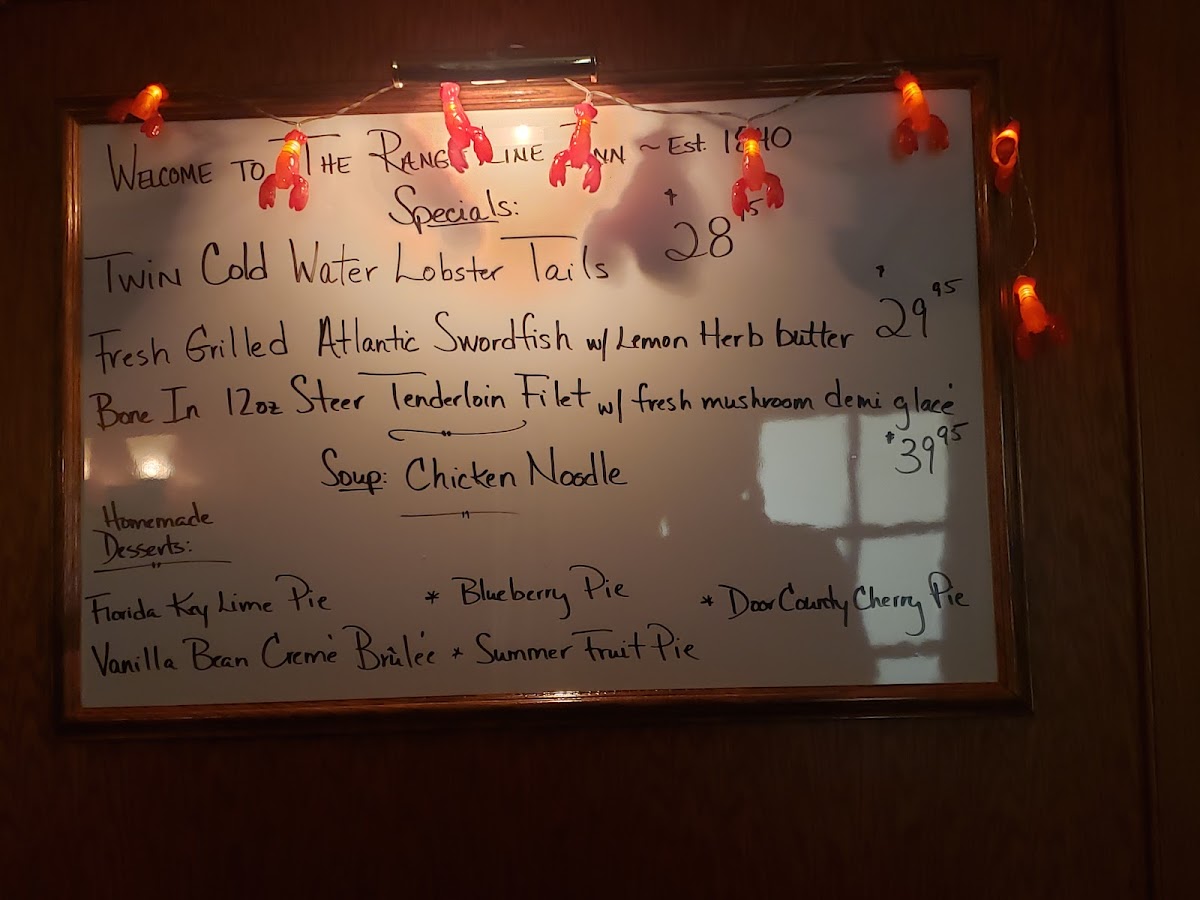 WELCOME TO THE RANGE LINE INN ~ Est. 1840
Specials:
TWIN Cold Water Lobster Tails $28 95
Fresh Grilled Atlantic Swordfish w/ Lemon Herb butter $29 95
Bone In 12oz Steer Tenderloin Filet w/ fresh mushroom demi glacé
$39 95
Soup: Chicken Noodle
Homemade
Desserts:
Florida Key Lime Pie * Blueberry Pie * Door County Cherry Pie
Vanilla Bean Cremé Brûleé * Summer Fruit Pie